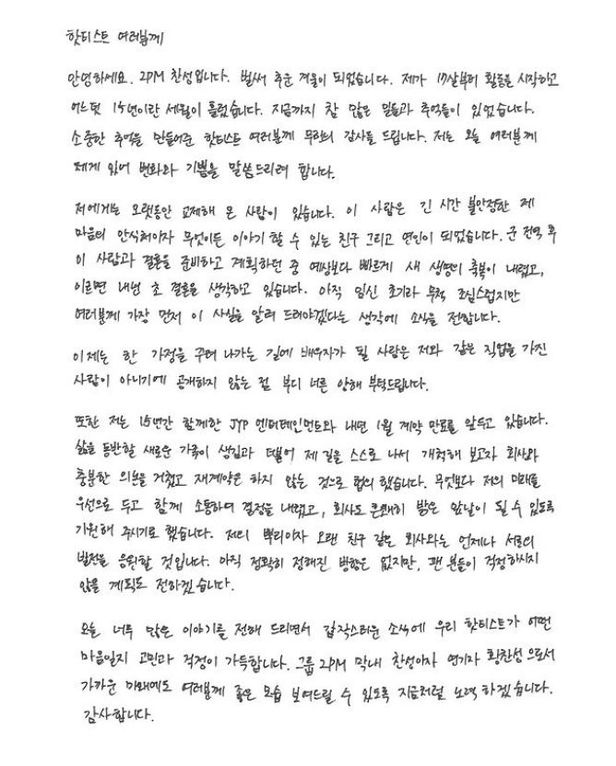 핫티스트 여러분께
안녕하세요. 2PM 찬성입니다. 벌써 추운 겨울이 되었습니다. 제가 17살부터 활동을 시작하고
어느덧 15년이란 세월이 흘렀습니다. 지금까지 참 많은 일들과 추억들이 있었습니다.
소중한 추억을 만들어준 핫티스트 여러분께 무한의 감사를 드립니다. 저는 오늘 여러분께
제게 있어 변화와 기쁨을 말씀드리려 합니다.
저에게는 오랫동안 교제해 온 사람이 있습니다. 이 사람은 긴 시간 불안정한 제
마음의 안식처이자 무엇이든 이야기 할 수 있는 친구 그리고 연인이 되었습니다. 군 전역 후
이 사람과 결혼을 준비하고 계획하던 중 예상보다 빠르게 새 생명의 축복이 내렸고,
이르면 내년 초 결혼을 생각하고 있습니다. 아직 임신 초기라 무척 조심스럽지만
여러분께 가장 먼저 이 사실을 알려 드려야겠다는 생각에 소식을 전합니다.
이제는 한 가정을 꾸려 나가는 길에 배우자가 될 사람은 저와 같은 직업을 가진
사람이 아니기에 공개하지 않는 점 부디 너른 양해 부탁드립니다.
또한 저는 15년간 함께한 JYP 엔터테인먼트와 내년 1월 계약 만료를 앞두고 있습니다.
삶을 동반할 새로운 가족이 생김과 더불어 제 길을 스스로 나서 개척해 보고자 회사와
충분한 의논을 거쳤고 재계약은 하지 않는 것으로 협의 했습니다. 무엇보다 저의 미래를
우선으로 두고 함께 소통하며 결정을 내렸고, 회사도 흔쾌히 밝은 앞날이 될 수 있도록
기원해 주시기로 했습니다. 저의 뿌리이자 오랜 친구 같은 회사와는 언제나 서로의
발전을 응원할 것입니다. 아직 정확히 정해진 방향은 없지만, 팬 분들이 걱정하시지
않을 계획도 전하겠습니다.
오늘 너무 많은 이야기를 전해 드리면서 갑작스러운 소식에 우리 핫티스트가 어떤
마음일지 고민과 걱정이 가득합니다. 그룹 2PM 막내 찬성이자 연기자 황찬성으로서
가까운 미래에도 여러분께 좋은 모습 보여드릴 수 있도록 지금처럼 노력 하겠습니다.
감사합니다.